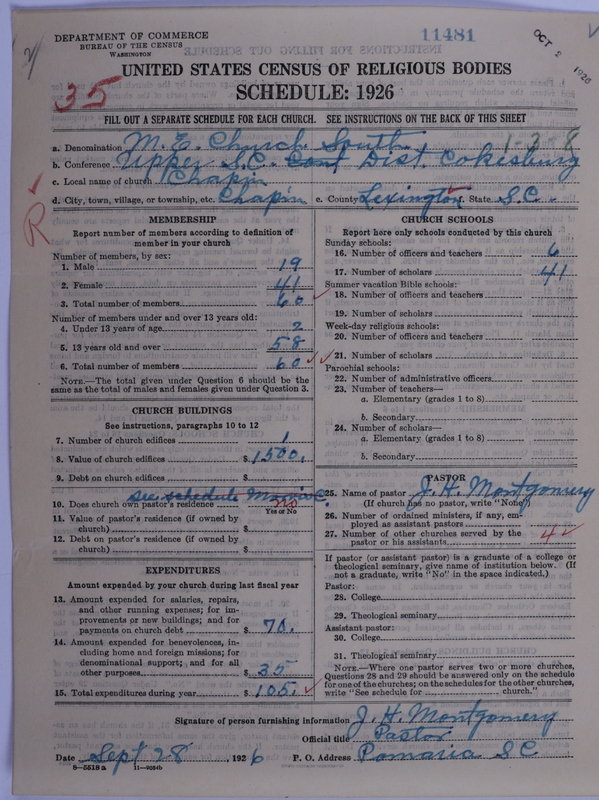 DEPARTMENT OF COMMERCE
BUREAU OF THE CENSUS
WASHINGTON
11481
OCT 2 1926
UNITED STATES CENSUS OF RELIGIOUS BODIES
35
SCHEDULE: 1926
FILL OUT A SEPARATE SCHEDULE FOR EACH CHURCH. SEE INSTRUCTIONS ON THE BACK OF THIS SHEET
a. Denomination M. E. Church South 1-3-8
b. Conference Upper S.C. Conf Dist. Cokesbury
c. Local name of church Chapin
d. City, town, village, or township, etc. Chapin e. County Lexington f. State S.C.
R
MEMBERSHIP
Report number of members according to definition of
member in your church
Number of members, by sex:
1. Male 19
2. Female 41
3. Total number of members 60
Number of members under and over 13 years old:
4. Under 13 years of age 2
5. 13 years old and over 58
6. Total number of members 60
NOTE.—The total given under Question 6 should be the
same as the total of males and females given under Question 3.
CHURCH BUILDINGS
See instructions, paragraphs 10 to 12
7. Number of church edifices 1
8. Value of church edifices $ 1500.
9. Debt on church edifices $
see schedule
10. Does church own pastor's residence no
Yes or No
11. Value of pastor's residence (if owned by
church) $
12. Debt on pastor's residence (if owned by
church) $
EXPENDITURES
Amount expended by your church during last fiscal year
13. Amount expended for salaries, repairs,
and other running expenses; for im-
provements or new buildings; and for
payments on church debt $ 70.
14. Amount expended for benevolences, in-
cluding home and foreign missions; for
denominational support; and for all
other purposes $ 35
15. Total expenditures during year $ 105.
CHURCH SCHOOLS
Report here only schools conducted by this church
Sunday schools:
16. Number of officers and teachers 6
17. Number of scholars 41
Summer vacation Bible schools:
18. Number of officers and teachers
19. Number of scholars
Week-day religious schools:
20. Number of officers and teachers
21. Number of scholars
Parochial schools:
22. Number of administrative officers
23. Number of teachers—
a. Elementary (grades 1 to 8)
b. Secondary
24. Number of scholars—
a. Elementary (grades 1 to 8)
b. Secondary
PASTOR
25. Name of pastor J. H. Montgomery
(If church has no pastor, write "None")
26. Number of ordained ministers, if any, em-
ployed as assistant pastors
27. Number of other churches served by the
pastor or his assistants 4
If pastor (or assistant pastor) is a graduate of a college or
theological seminary, give name of institution below. (If
not a graduate, write "No" in the space indicated.)
Pastor:
28. College
29. Theological seminary
Assistant pastor:
30. College
31. Theological seminary
NOTE.—Where one pastor serves two or more churches,
Questions 28 and 29 should be answered only on the schedule
for one of the churches; on the schedules for the other churches,
write "See schedule for church."
Signature of person furnishing information J. H. Montgomery
Official title Pastor
Date Sept 28, 1926 P. O. Address Pomaria S C
8—5518 a 11—9054b